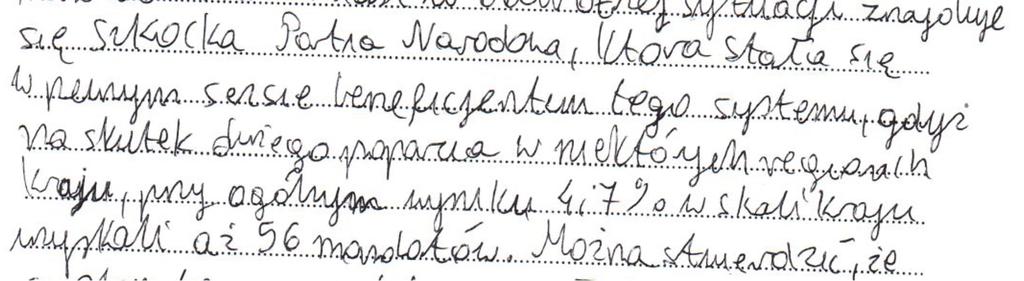 sytuacji znajduje
się Szkocka Partia Narodowa, która stała się
w pewnym sensie beneficjentem tego systemu, gdyż
na skutek dużego poparcia w niektórych regionach
kraju, przy ogólnym wyniku 4,7% w skali kraju
uzyskali aż 56 mandatów. Można stwierdzić, że